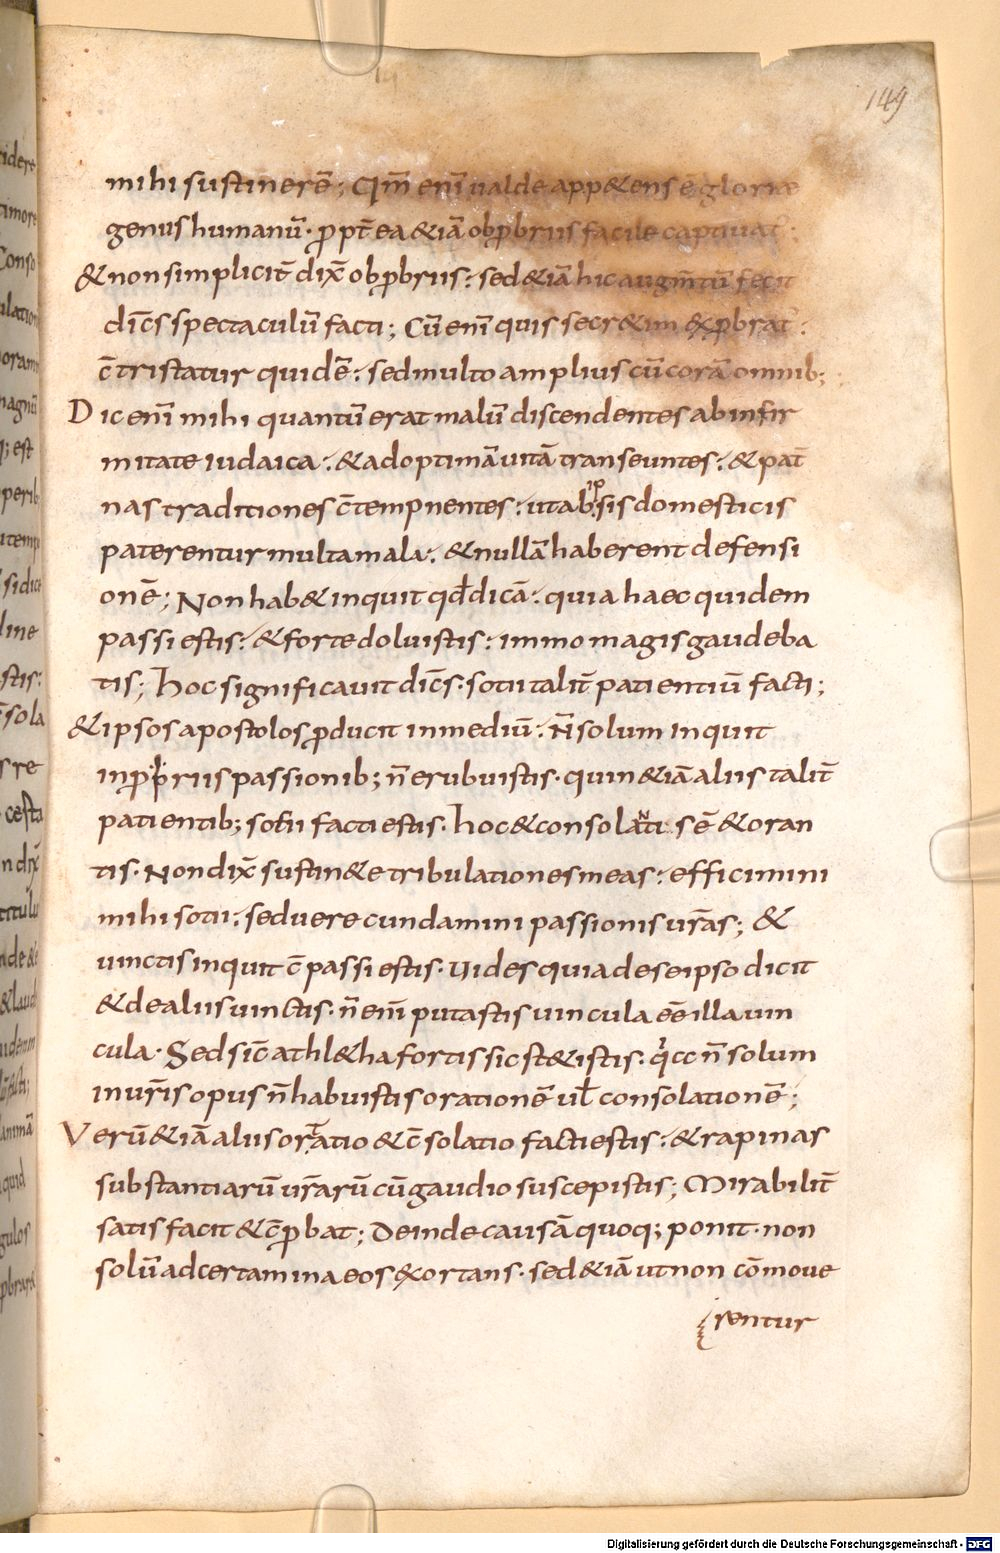 149
mihi sustinerē; Qm̄ enī ualde app&ens ē gloriae
genus humanū· ꝓpt̄ ea &iā obꝓbriis facile captiuat᷑:
& non simplicit̄ dix̄ obꝓbriis: sed &iā hic augm̄tū fecit
dīcs spectaculū facti; Cū enī quis secr&im exꝓbrat᷑:
c̄tristatur quidē: sed multo amplius cū corā omnib;
Dic enī mihi quantū erat malū discendentes ab infir
mitate iudaica: & ad optimā uitā transeuntes: & pat̄
nas traditiones c̄tempnentes: ut ab ipsis domesticis
paterentur multa mala: & nullā haberent defensi
onē; Non hab& inquit qđ dicā: quia haec quidem
passi estis: & forte doluistis: immo magis gaudeba
tis; hoc significauit dīcs· sotii talit̄ patientiū facti;
& ipsos apostolos ꝓducit in mediū: n̄ solum inquit
in ꝓpriis passionib; n̄ erubuistis· quin &iā aliis talit̄
patientib; sotii facti estis· hoc & consolanti sē & oran
tis· Non dix̄ sustin&e tribulationes meas: efficimini
mihi sotii: sed uerecundamini passionis ur̄as; &
uinctis inquit c̄passi estis· Uides quia de se ipso dicit
& de aliis uinctis· n̄ enī putastis uincula eē illa uin
cula· Sed sic̄ athl&ha fortis sic st&istis· qicc n̄ solum
in ur̄is opus n̄ habuistis orationē ul̄ consolationē;
Verū &iā aliis oratio & c̄solatio facti estis: & rapinas
substantiarū ur̄arū cū gaudio suscepistis; Mirabilit̄
satisfacit & c̄ꝓbat; Deinde causā quoq; ponit· non
solū ad certamina eos exortans· sed &iā ut non cōmoue
rentur
Digitalisierung gefördert durch die Deutsche Forschungsgemeinschaft - DFG